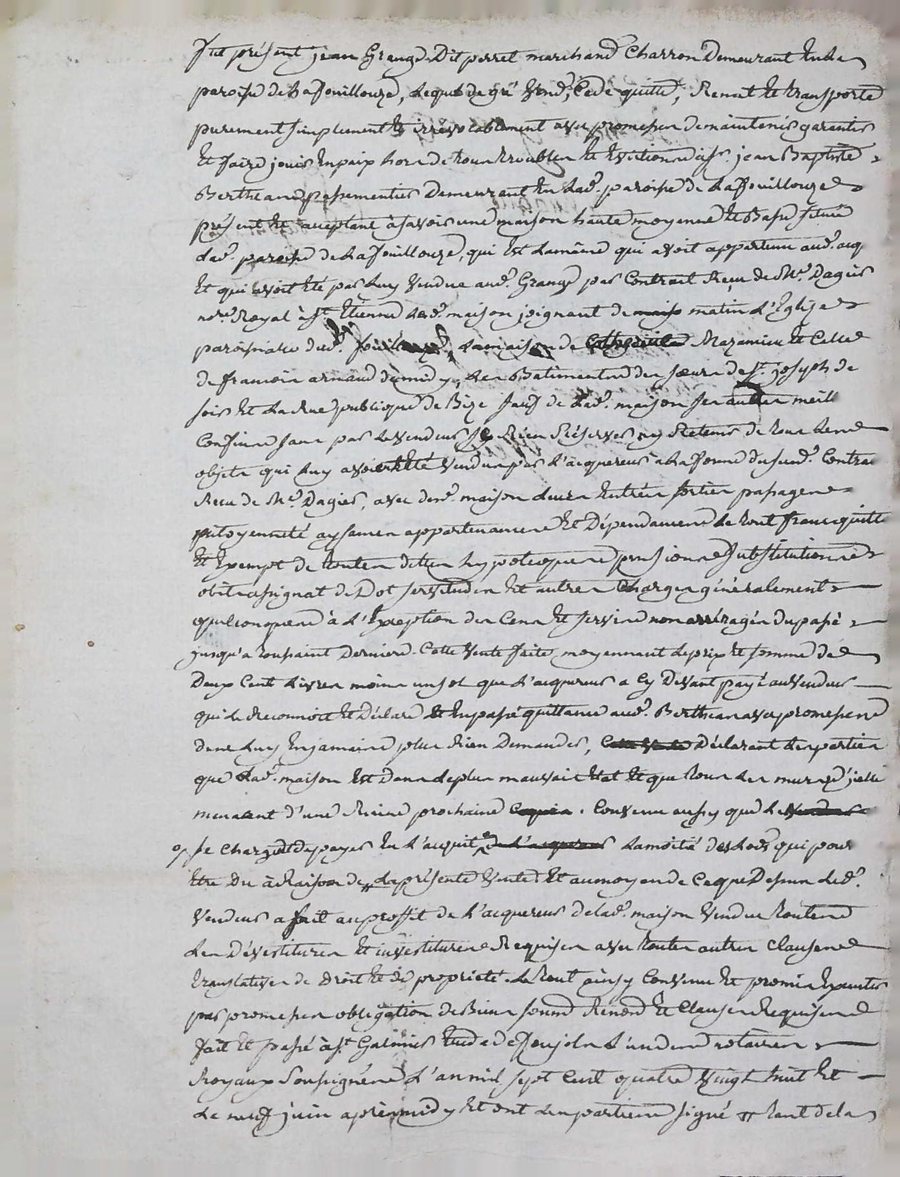 fut présent jean Grange Dit perret marchand Charron Demeurant En la
paroisse de La fouillouze, Lequel de gré Vend, Cede quitte, Remet Et transporte
purement simplement Et irrevocablement avec promesse de maintenir garantir
Et faire jouir En paix hors de tous troubles Et Evictions a sr. jean Baptiste
Berthean passementier Demeurant En lad. paroisse de La fouillouze
présent Et acceptant àsavoir une maison haute moyenne Et Basse située
lad. paroisse de La fouillouze, qui Est La même qui avoit appartenu aud. acq
Et qui avoit été par luy Vendue aud. Grange par Contrat Reçu de Me. Dagier
nre. Royal à St. Etienne lad. maison joignant de matin l'Eglise
paroissiale dud. fouillouze, la maison de Mazenieu Et Celle
de francois armand de midy, Les Batiments des sœurs de St. joseph de
soir Et La Rue publique de Bize sauf de lad. maison ses autres meill
Confins sans par Le vendeur se Rien Réserver ny Retenir de tous les
objets qui luy avoient été Vendus par l'acquereur a la forme du susd. Contrat
Recu de Me. Dagier, avec lad. maison leurs Entrées sorties passages
mitoyenneté aysances appartenances Et Dépendances Le tout franc quitte
Et Exempt de toutes dettes hypoteques pensions substitutions
obits assignat de Dot servitudes Et autres Charges généralement
quelconques à l'Exception des Cens Et servis non arréragés du passé
jusqu'a toussaint Derniere. Cette Vente faite moyennant Le prix Et somme de
Deux Cent Livres moins un sol que L'acquereur a Cy Devant payé au vendeur
qui Le Reconnoit Et Déclare Et En passe quittance aud. Berthean avec promesse
de ne luy En jamais plus Rien Demander, Déclarant Les parties
que lad. maison Est Dans le plus mauvais Etat Et que tous Les murs d'jcelle
menacent d'une Ruine prochaine . Convenu aussy que Le
se Charge de payer En l'acquit La moitié des Lods qui pour
être Du à Raison de La présente Vente. Et au moyen de Ce que Dessus Led.
Vendeur a fait au proffit de L'acquereur de lad. maison Vendue toutes
Les Dévestitures Et investitures Requises avec toutes autres Clauses
translatives de Droit Et de propriété. Le tout ainsy Convenu Et promis Executer
par promesses obligation de Biens soum. Renon. Et Clauses Requises
fait Et passé à St. Galmier Etude de l'un des notaires
Royaux Soussignés L'an mil sept Cent quatre Vingt huit Et
Le neuf juin après midy Et ont Les parties signé tant de la